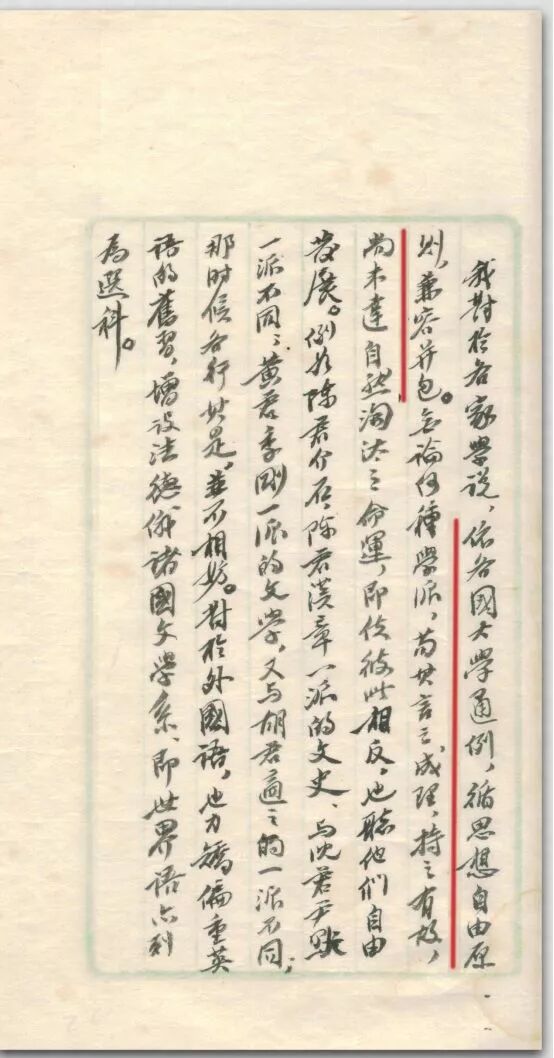 我對於各家學說，依各國大學通例，循思想自由原
則，兼容并包。無論何種學派，苟其言之成理，持之有故，
尚未達自然淘汰之命運，即使彼此相反，也聽他們自由
發展。例如陳君介石、陳君漢章一派的文史、與沈君尹默
一派不同；黃君季剛一派的文學，又与胡君適之的一派不同；
那时候各行其是，並不相妨。對於外國語，也力矯偏重英
語的舊習，增設法德俄諸國文學系、即世界語亦列
為選科。